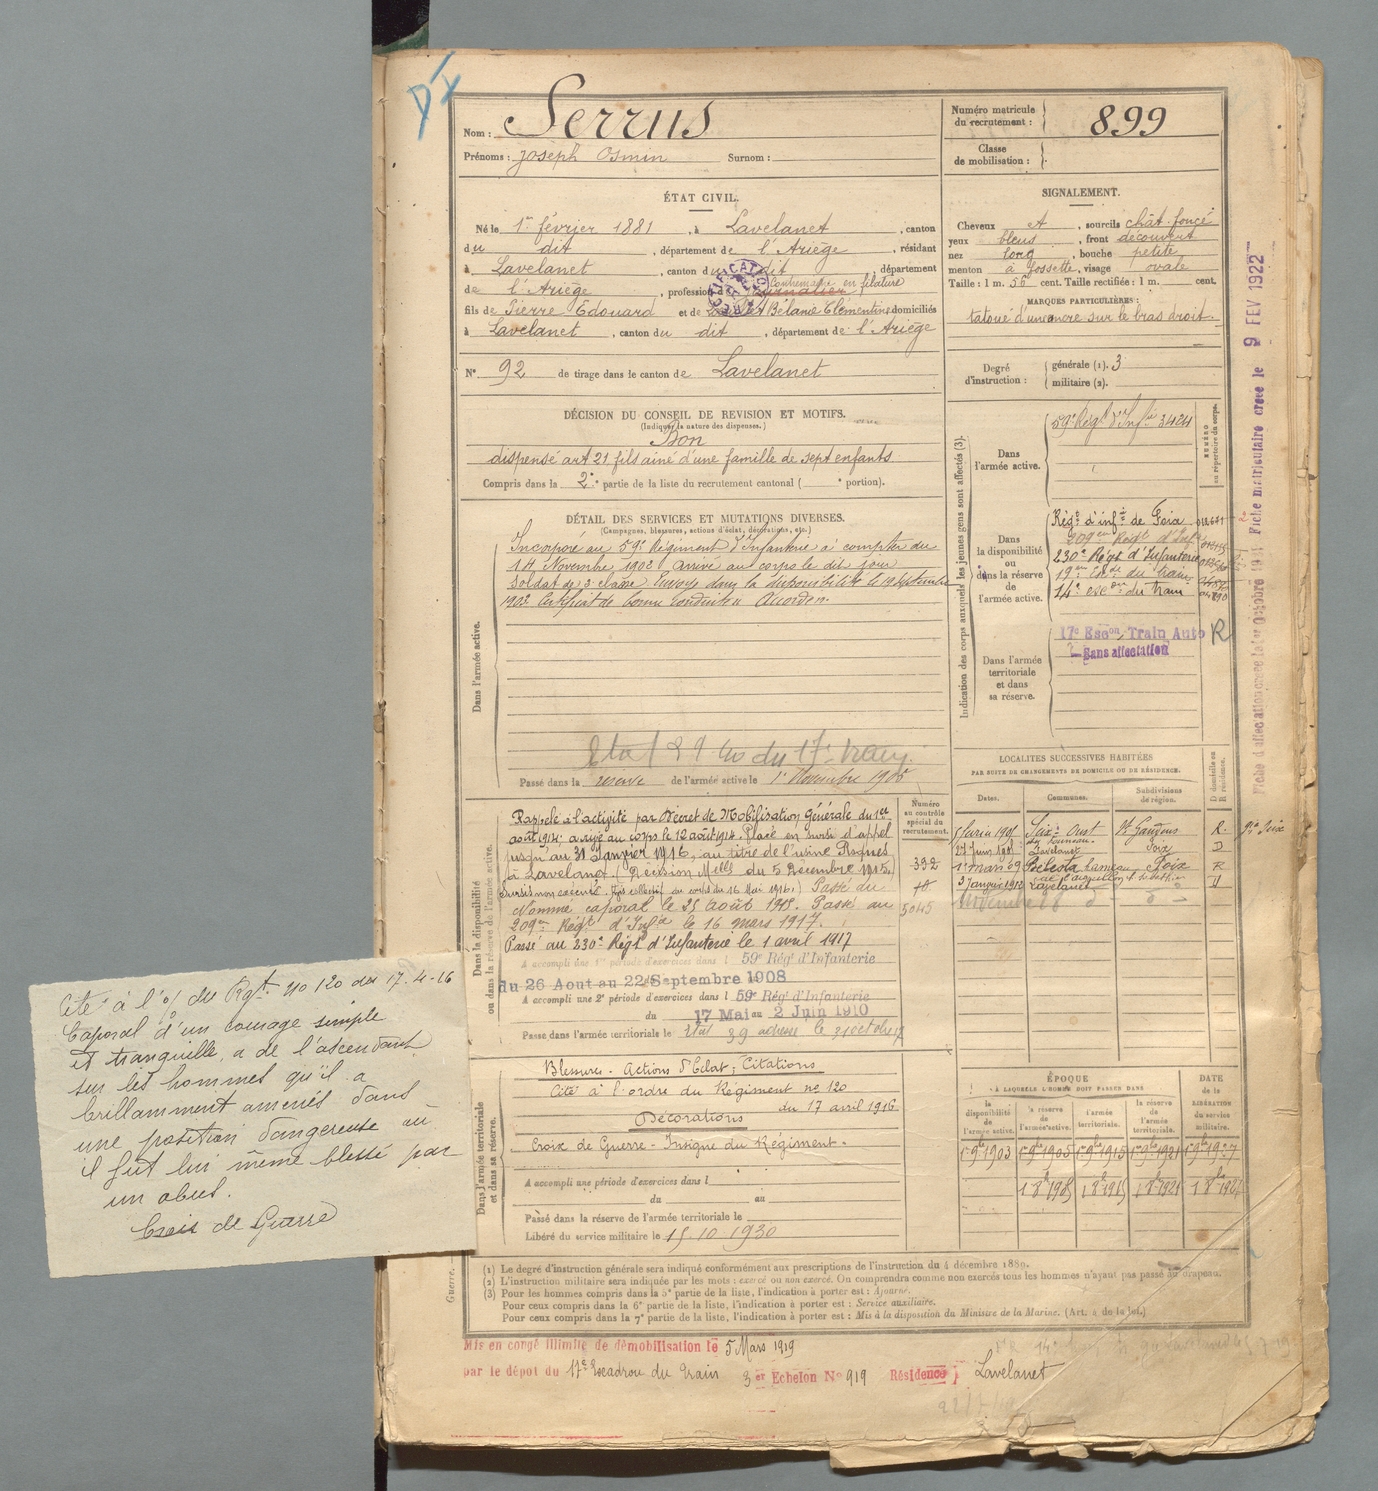 Nom : Serrus
Prénoms : Joseph Osmin Surnom :
Numéro matricule
du recrutement : 899
Classe
de mobilisation :
ÉTAT CIVIL.
Né le 1er février 1881, à Lavelanet, canton
du dit, département de l'Ariège, résidant
à Lavelanet, canton du dit, département
de l'Ariège, profession de Contremaître en filature
fils de Pierre Edouard et de Bélanie Clémentine domiciliés
à Lavelanet, canton du dit, département de l'Ariège
N° 92 de tirage dans le canton de Lavelanet
SIGNALEMENT.
Cheveux et, sourcils chât. foncé
yeux bleus, front découvert
nez long, bouche petite
menton à fossette, visage ovale
Taille : 1 m. 56 cent. Taille rectifiée : 1 m. cent.
MARQUES PARTICULIÈRES :
tatoué d'un ancre sur le bras droit.
Degré
d'instruction :
générale (1). 3
militaire (2).
DÉCISION DU CONSEIL DE REVISION ET MOTIFS.
(Indiquer la nature des dispenses.)
Bon
dispensé art 21 fils ainé d'une famille de sept enfants
Compris dans la 2e partie de la liste du recrutement cantonal ( e portion).
DÉTAIL DES SERVICES ET MUTATIONS DIVERSES.
(Campagnes, blessures, actions d'éclat, décorations, etc.)
Dans l'armée active.
Incorporé au 59e Régiment d'Infanterie à compter du
14 Novembre 1902 arrivé au corps le dit jour
Soldat de 2e classe Envoyé dans la disponibilité le 19 septembre
1903 Certificat de bonne conduite Accordé.
Passé dans la réserve de l'armée active le 1er Novembre 1905
Indication des corps auxquels les jeunes gens sont affectés (3).
NUMÉRO
au répertoire du corps.
Dans
l'armée active.
59e Régt d'Infie 3424
Dans
la disponibilité
ou dans la réserve
de
l'armée active.
Régt d'infie de Foix
209em Régt d'Infie
230e Régt d'Infanterie
19em du train
14e escon du train
Dans l'armée
territoriale
et dans
sa réserve.
17e Escon Train Auto R
Sans affectation
Fiche matriculaire créée le 9 FEV 1922
LOCALITES SUCCESSIVES HABITÉES
PAR SUITE DE CHANGEMENTS DE DOMICILE OU DE RÉSIDENCE.
Dates. Communes. Subdivisions
de région.
D domicile ou
R résidence.
Seix Oust St Gaudens R.
27 Juin 1908 Lavelanet Foix D
1 mars 09 Bélesta hameau Foix R
Lavelanet D
Dans la disponibilité
ou dans la réserve de l'armée active.
Numéro
au contrôle
spécial du
recrutement.
332
5045
Rappelé à l'activité par Décret de Mobilisation Générale du 1er
août 1914 arrivé au corps le 12 août 1914. Placé en sursis d'appel
jusqu'au 31 Janvier 1916, au titre de l'usine
à Lavelanet. (Décision Mlle du 5 Décembre 1915.)
Passé du
Nommé caporal le 25 août 1915. Passé au
209em Régt d'Infie le 16 mars 1917.
Passé au 230e Régt d'Infanterie le 1 avril 1917
A accompli une 1re période d'exercices dans l 59e Régt d'Infanterie
du 26 Aout au 22 Septembre 1908
A accompli une 2e période d'exercices dans l 59e Régt d'Infanterie
du 17 Mai au 2 Juin 1910
Passé dans l'armée territoriale le
Dans l'armée territoriale
et dans sa réserve.
Blessures - Actions d'Eclat ; Citations
Cité à l'ordre du Régiment no 120
du 17 avril 1916
Décorations
Croix de Guerre - Insigne du Régiment.
A accompli une période d'exercices dans l
du au
Passé dans la réserve de l'armée territoriale le
Libéré du service militaire le 15.10 1930
ÉPOQUE
À LAQUELLE L'HOMME DOIT PASSER DANS
la
disponibilité
de
l'armée active.
la réserve
de
l'armée active.
l'armée
territoriale.
la réserve
de
l'armée
territoriale.
DATE
de la
LIBÉRATION
du service
militaire.
1er 9bre 1903 1er 9bre 1905 1er 9bre 1915 1er 9bre 1921 1er 9bre 1927
Cité à l'o/ du Rgt. no 120 du 17-4-16
Caporal d'un courage simple
et tranquille, a de l'ascendant
sur les hommes qu'il a
brillamment amenés dans
une position dangereuse où
il fut lui même blessé par
un obus.
Croix de Guerre
Guerre.
(1) Le degré d'instruction générale sera indiqué conformément aux prescriptions de l'instruction du 4 décembre 1889.
(2) L'instruction militaire sera indiquée par les mots : exercé ou non exercé. On comprendra comme non exercés tous les hommes n'ayant pas passé au drapeau.
(3) Pour les hommes compris dans la 5e partie de la liste, l'indication à porter est : Ajourné.
Pour ceux compris dans la 6e partie de la liste, l'indication à porter est : Service auxiliaire.
Pour ceux compris dans la 7e partie de la liste, l'indication à porter est : Mis à la disposition du Ministre de la Marine. (Art. 4 de la loi.)
Mis en congé illimité de démobilisation le 5 Mars 1919
par le dépôt du 17e Escadron du Train 3er Echelon N° 919 Résidence Lavelanet